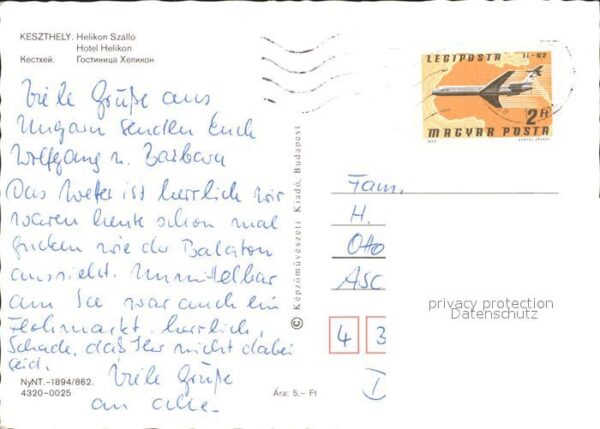 KESZTHELY. Helikon Szálló
Hotel Helikon
Кестхей. Гостиница Хеликон
LÉGIPOSTA IL-62
2 Ft
MAGYAR POSTA
Viele Grüße aus
Ungarn senden Euch
Wolfgang u. Barbara
Das Wetter ist herrlich wir
waren heute schon mal
gucken wie der Balaton
aussieht. Unmittelbar
am See war auch ein
Flohmarkt, herrlich,
Schade, daß Ihr nicht dabei
seid.
Viele Grüße
an alle.
NyNT.-1894/862.
4320-0025
Ára: 5,- Ft
© Képzőművészeti Kiadó, Budapest
Fam.
H.
Otto
ASC
4 3
D
privacy protection
Datenschutz